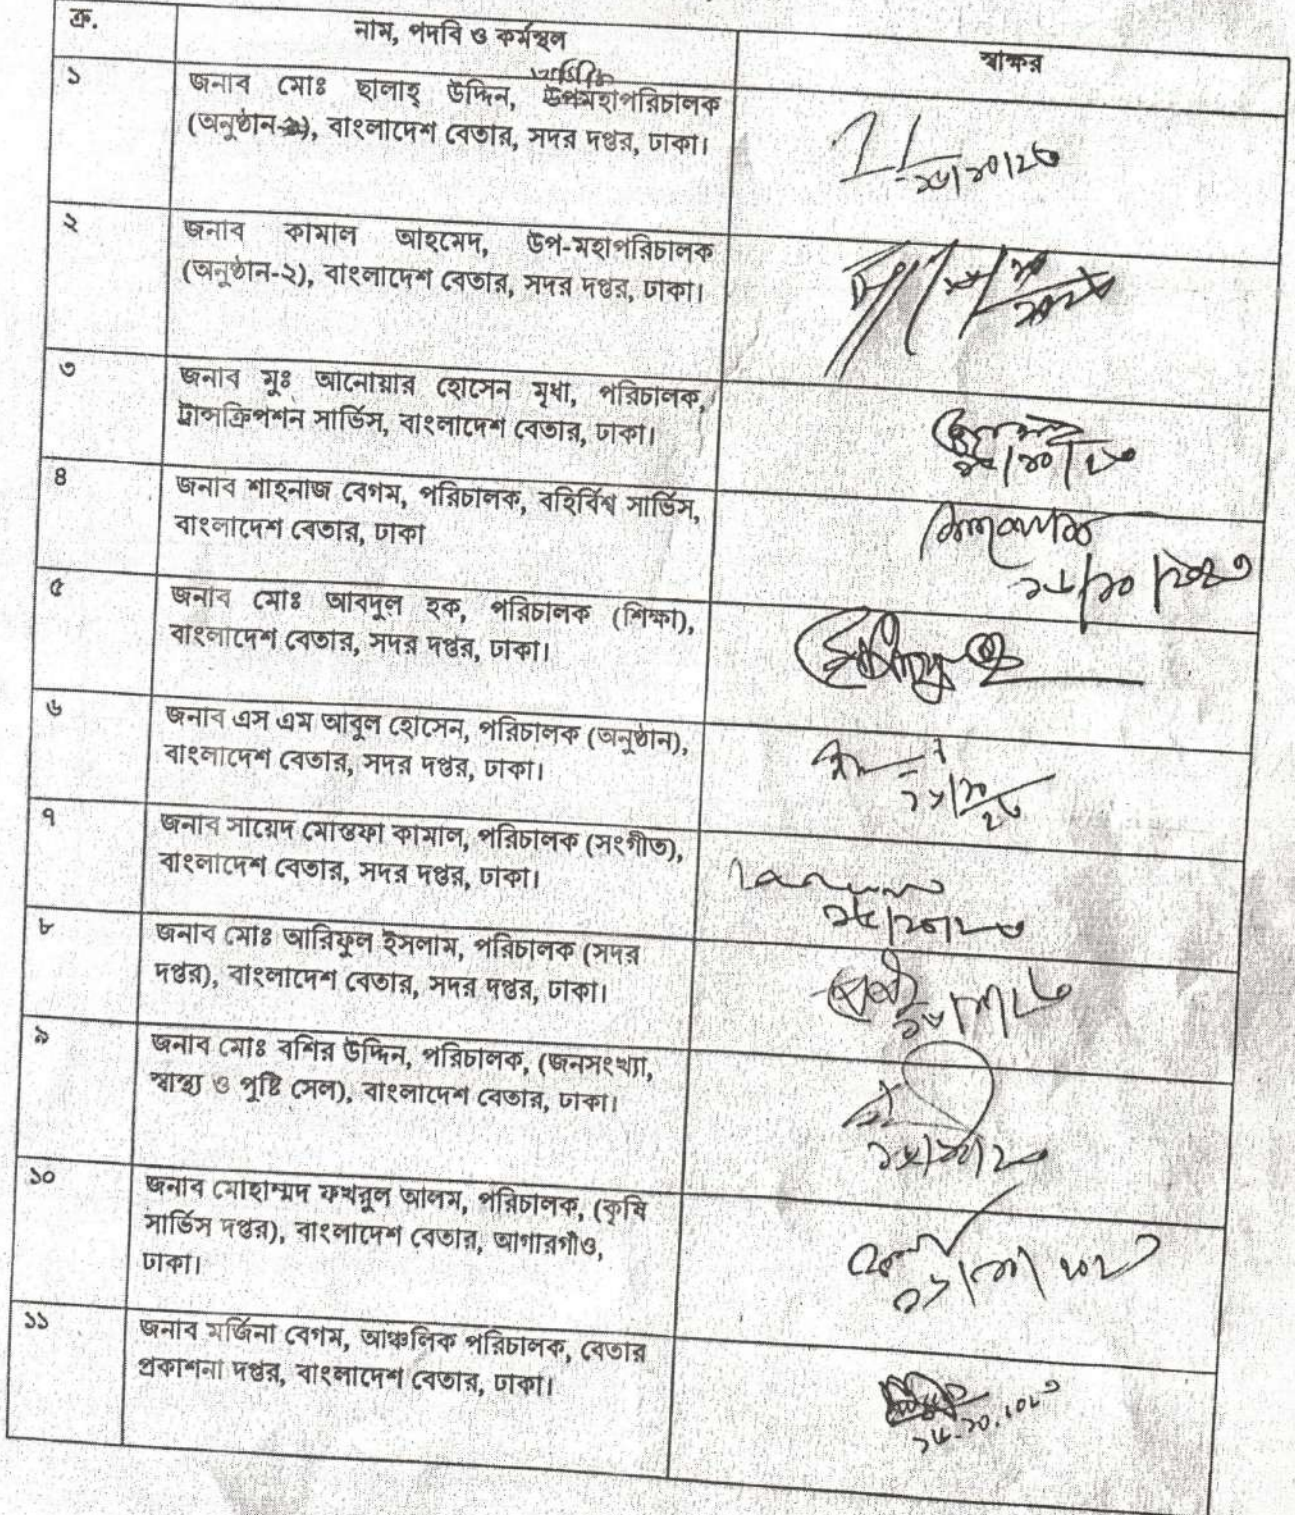 ক্র.
নাম, পদবি ও কর্মস্থল
স্বাক্ষর
১
জনাব মোঃ ছালাহ্ উদ্দিন, উপমহাপরিচালক
(অনুষ্ঠান-), বাংলাদেশ বেতার, সদর দপ্তর, ঢাকা।
২
জনাব কামাল আহমেদ, উপ-মহাপরিচালক
(অনুষ্ঠান-২), বাংলাদেশ বেতার, সদর দপ্তর, ঢাকা।
৩
জনাব মুঃ আনোয়ার হোসেন মৃধা, পরিচালক,
ট্রান্সক্রিপশন সার্ভিস, বাংলাদেশ বেতার, ঢাকা।
৪
জনাব শাহনাজ বেগম, পরিচালক, বহির্বিশ্ব সার্ভিস,
বাংলাদেশ বেতার, ঢাকা
৫
জনাব মোঃ আবদুল হক, পরিচালক (শিক্ষা),
বাংলাদেশ বেতার, সদর দপ্তর, ঢাকা।
৬
জনাব এস এম আবুল হোসেন, পরিচালক (অনুষ্ঠান),
বাংলাদেশ বেতার, সদর দপ্তর, ঢাকা।
৭
জনাব সায়েদ মোস্তফা কামাল, পরিচালক (সংগীত),
বাংলাদেশ বেতার, সদর দপ্তর, ঢাকা।
৮
জনাব মোঃ আরিফুল ইসলাম, পরিচালক (সদর
দপ্তর), বাংলাদেশ বেতার, সদর দপ্তর, ঢাকা।
৯
জনাব মোঃ বশির উদ্দিন, পরিচালক, (জনসংখ্যা,
স্বাস্থ্য ও পুষ্টি সেল), বাংলাদেশ বেতার, ঢাকা।
১০
জনাব মোহাম্মদ ফখরুল আলম, পরিচালক, (কৃষি
সার্ভিস দপ্তর), বাংলাদেশ বেতার, আগারগাঁও,
ঢাকা।
১১
জনাব মর্জিনা বেগম, আঞ্চলিক পরিচালক, বেতার
প্রকাশনা দপ্তর, বাংলাদেশ বেতার, ঢাকা।